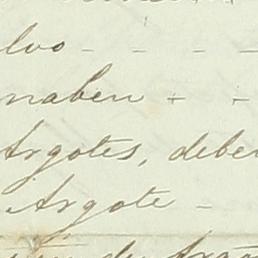 lvo - - - -
naben + +
Argotes, deber
Argote -
de Argo